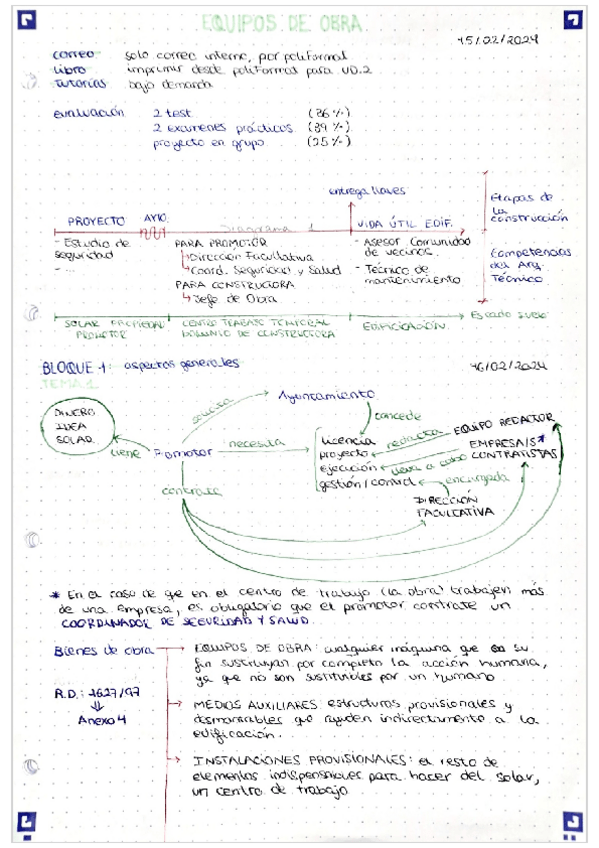 EQUIPOS DE OBRA
15/02/2024
correo solo correo interno, por poliformaT
libro imprimir desde poliformaT para UD.2
tutorías bajo demanda
evaluación 2 test (36%)
2 exámenes prácticos (39%)
proyecto en grupo (25%)
entrega llaves
PROYECTO AYTO. Diagrama 1 VIDA ÚTIL EDIF.
Etapas de la construcción
- Estudio de seguridad
- ...
PARA PROMOTOR
Dirección Facultativa
Coord. Seguridad y Salud
PARA CONSTRUCTORA
Jefe de Obra
- Asesor comunidad de vecinos.
- Técnico de mantenimiento
Competencias del Arq. Técnico
SOLAR PROPIEDAD PROMOTOR
CENTRO TRABAJO TEMPORAL DOMINIO DE CONSTRUCTORA
EDIFICACIÓN
Estado suelo
BLOQUE 1: aspectos generales
16/02/2024
TEMA 1
DINERO
IDEA
SOLAR
tiene
Promotor
solicita
Ayuntamiento
concede
necesita
licencia
proyecto
ejecución
gestión/control
redacta
EQUIPO REDACTOR
lleva a cabo
EMPRESA/S*
CONTRATISTAS
encargada
DIRECCIÓN
FACULTATIVA
contrata
* En el caso de qe en el centro de trabajo (la obra) trabajen más
de una empresa, es obligatorio que el promotor contrate un
COORDINADOR DE SEGURIDAD Y SALUD.
Bienes de obra
EQUIPOS DE OBRA: cualquier máquina que en su
fin sustituyan por completo la acción humana,
ya que no son sustituibles por un humano
R.D.: 1627/97
Anexo 4
MEDIOS AUXILIARES: estructuras provisionales y
desmontables que ayuden indirectamente a la
edificación.
INSTALACIONES PROVISIONALES: el resto de
elementos indispensables para hacer del solar,
un centro de trabajo